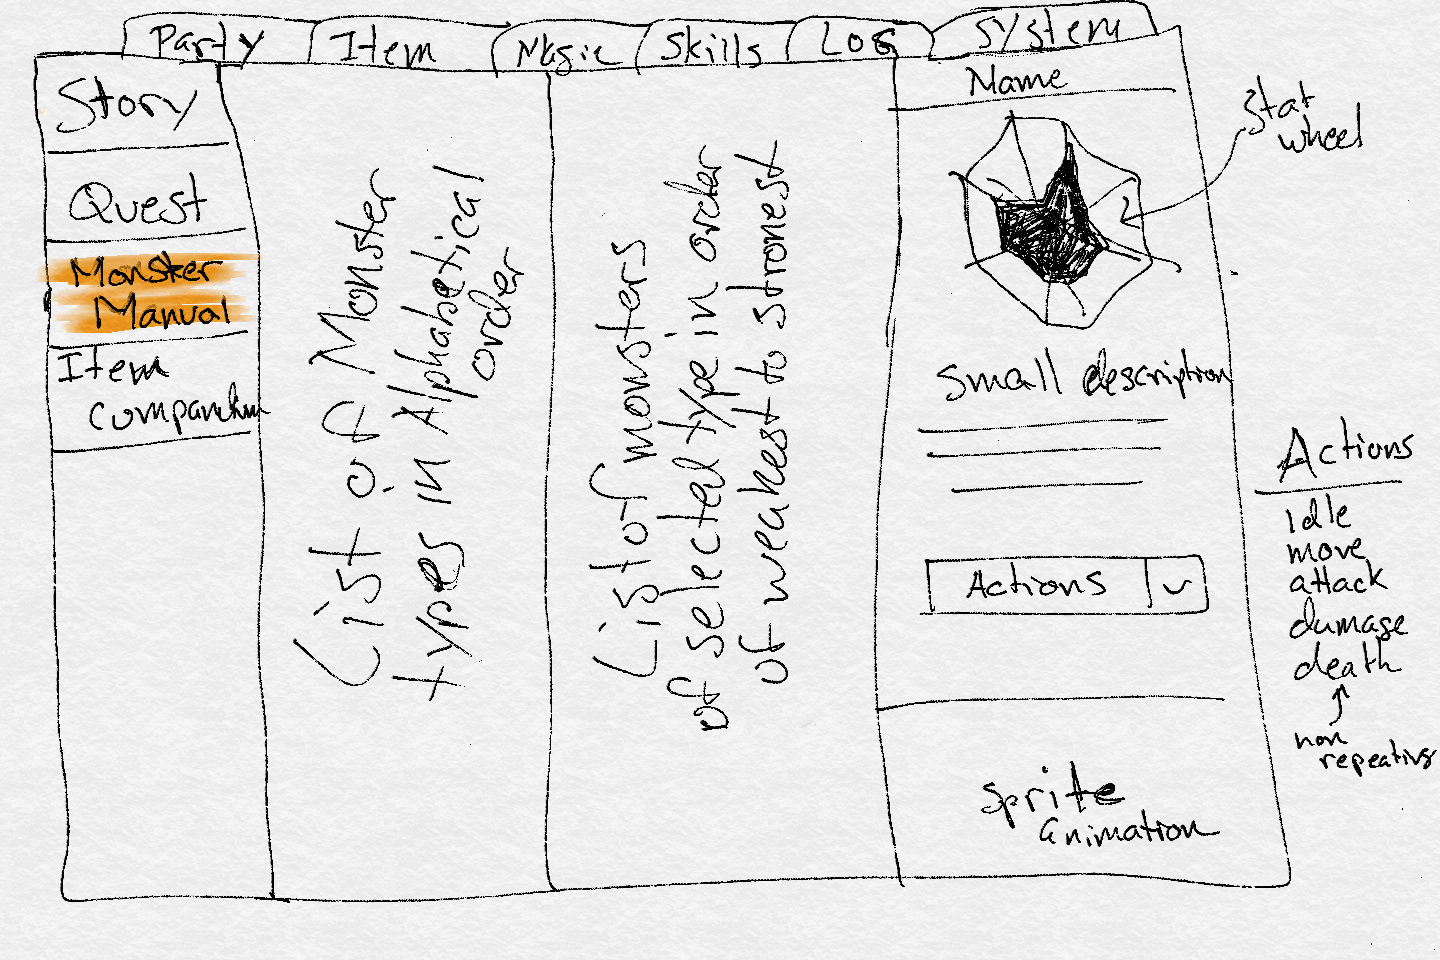 Party
Item
Magic
Skills
LOG
System
Story
Quest
Monster
Manual
Item
List of Monster
types in Alphabetical
order
List of monsters
of selected type in order
of weakest to strongest
Name
Stat
wheel
Small description
Actions
Sprite
animation
Actions
idle
move
attack
damage
death
non